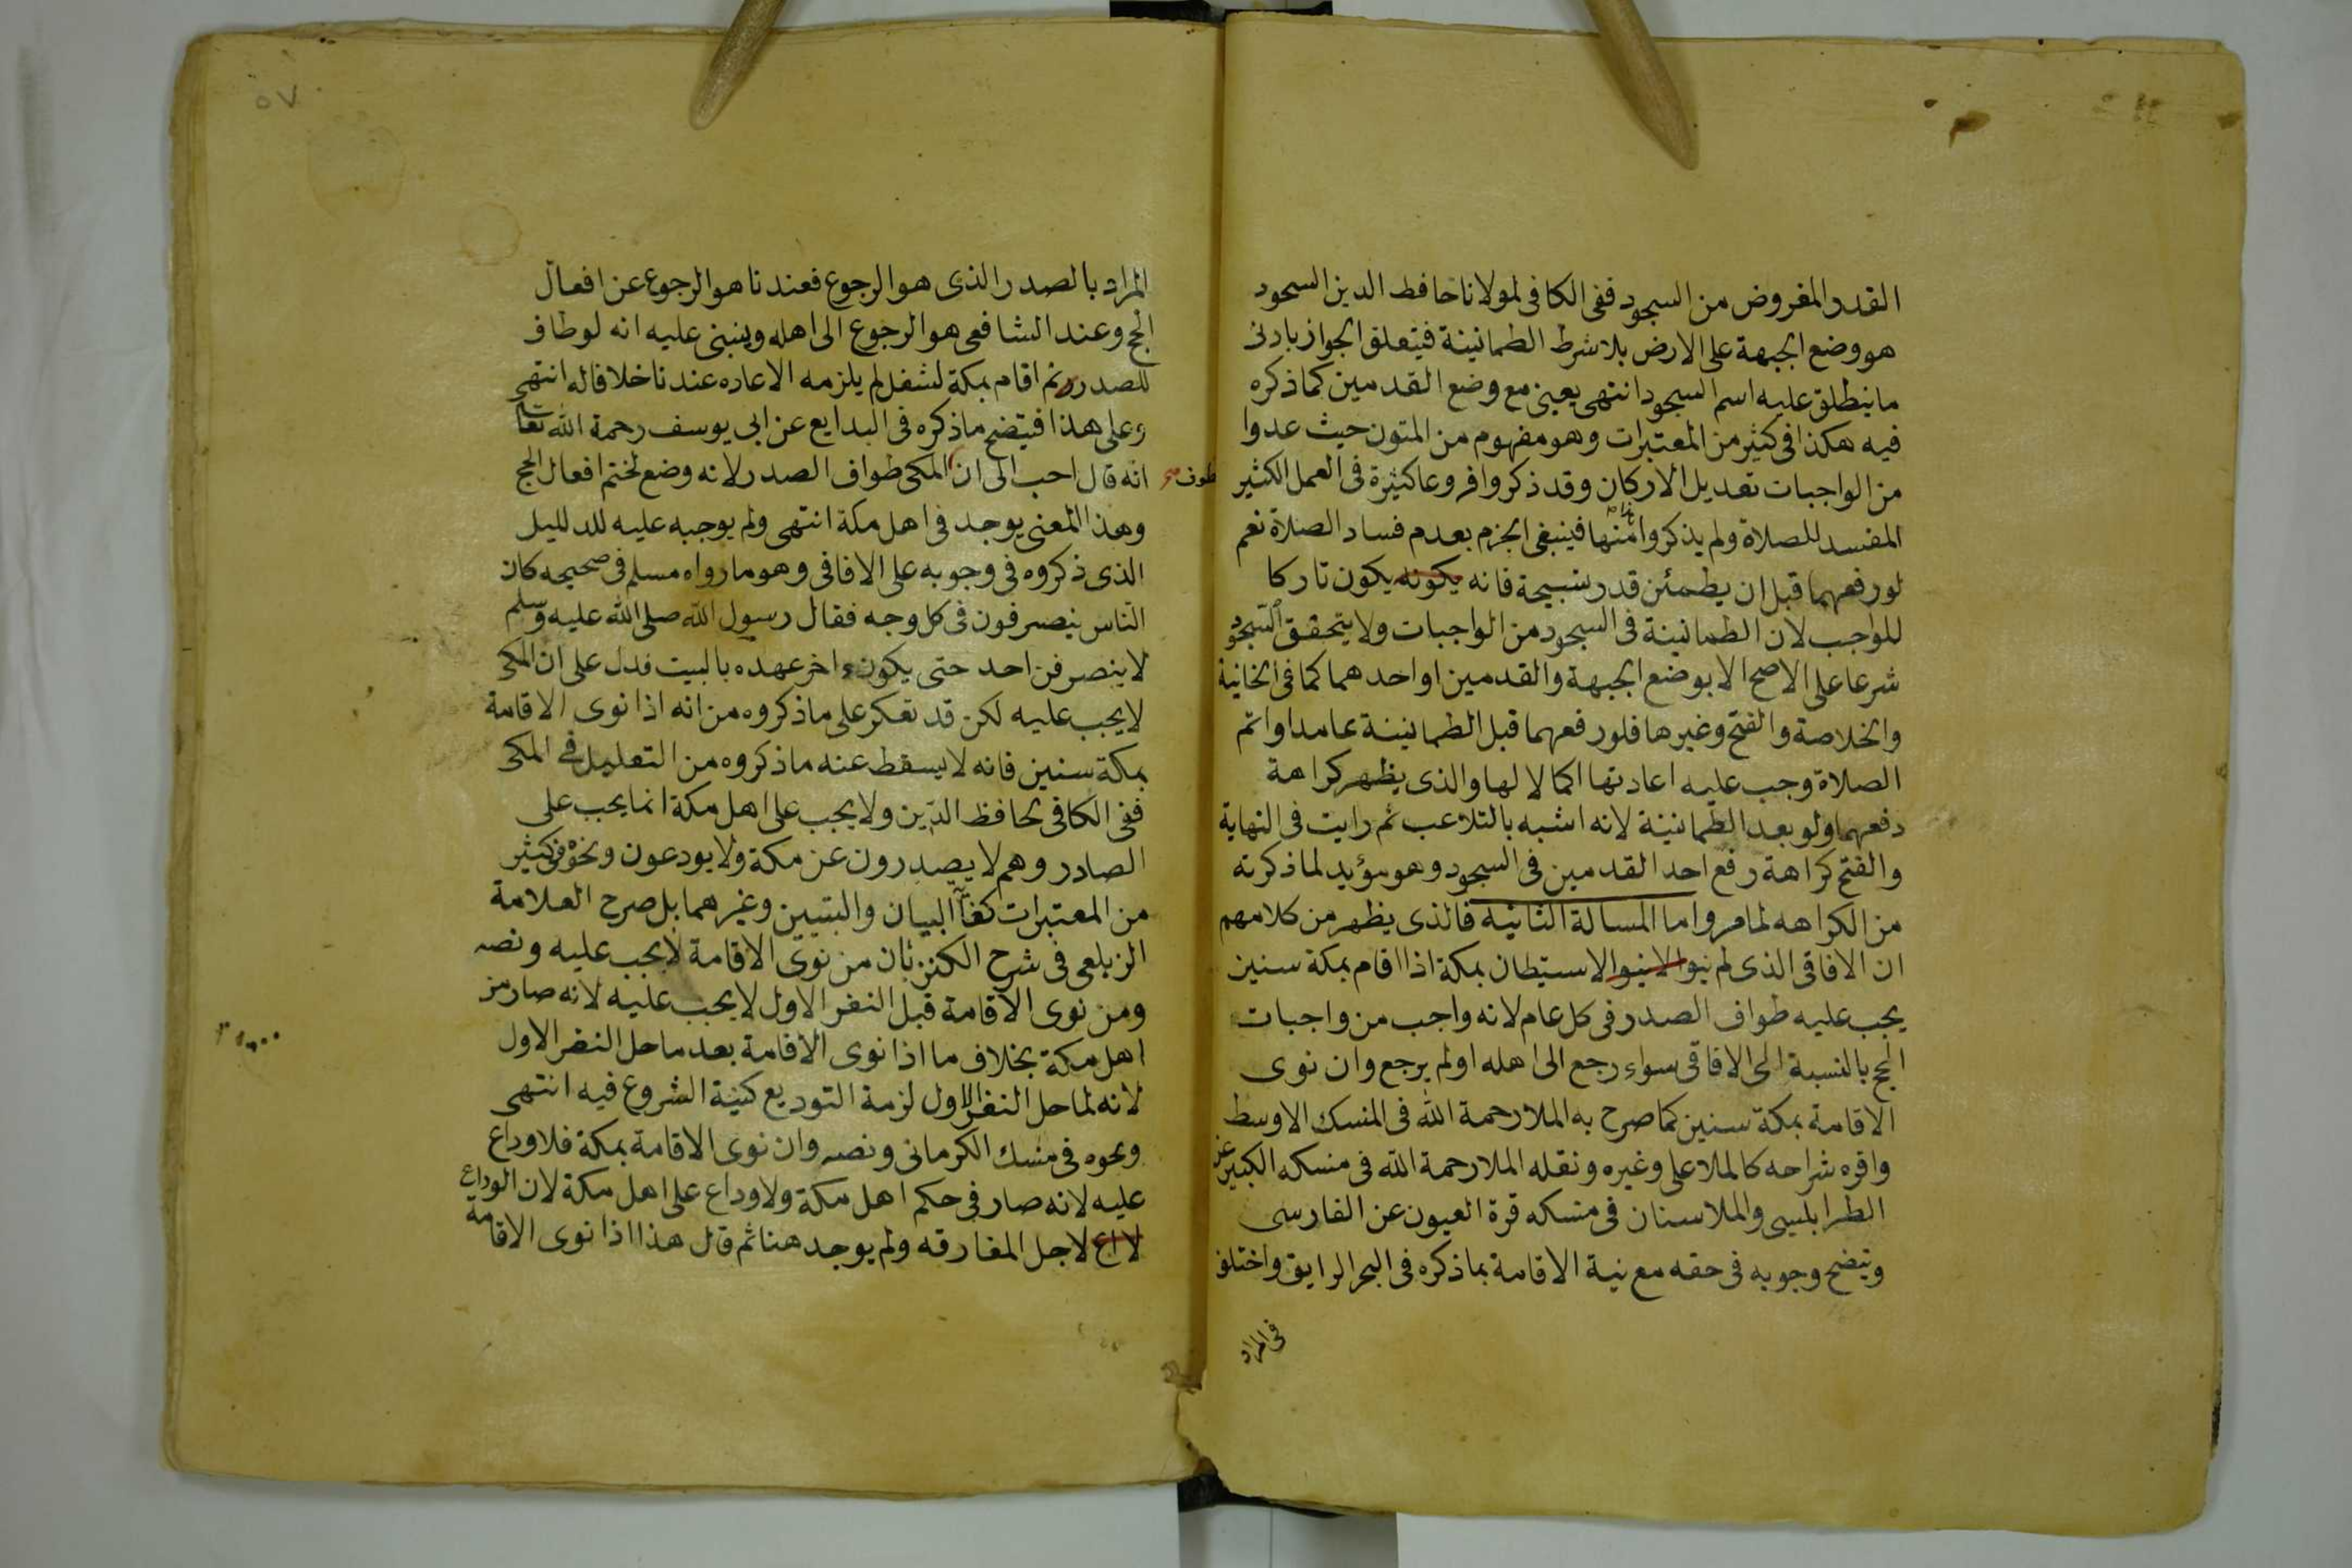 القدر المفروض من السجود ففى الكافى لمولانا حافظ الدين السجود
هو وضع الجبهة على الارض بلا شرط الطمانينة فيتعلق الجواز بادنى
ما ينطلق عليه اسم السجود انتهى يعنى مع وضع القدمين كما ذكره
فيه هكذا فى كثير من المعتبرات وهو مفهوم من المتون حيث عدوا
من الواجبات تعديل الاركان وقد ذكروا فروعا كثيرة فى العمل الكثير
المفسد للصلاة ولم يذكروا منها فينبغى الجزم بعدم فساد الصلاة نعم
لو رفعهما قبل ان يطمئن قدر تسبيحة فانه يكونه يكون تاركا
للواجب لان الطمانينة فى السجود من الواجبات ولا يتحقق السجود
شرعا على الاصح الا بوضع الجبهة والقدمين او احدهما كما فى الخانية
والخلاصة والفتح وغيرها فلو رفعهما قبل الطمانينة عامدا واتم
الصلاة وجب عليه اعادتها اكمالا لها والذى يظهر كراهة
رفعهما ولو بعد الطمانينة لانه اشبه بالتلاعب ثم رايت فى النهاية
والفتح كراهة رفع احد القدمين فى السجود وهو مؤيد لما ذكرته
من الكراهه لما مر واما المسالة الثانية فالذى يظهر من كلامهم
ان الافاقى الذى لم ينوا لا ينوا الاستيطان بمكة اذا اقام بمكة سنين
يجب عليه طواف الصدر فى كل عام لانه واجب من واجبات
الحج بالنسبة الى الافاقى سواء رجع الى اهله او لم يرجع وان نوى
الاقامة بمكة سنين كما صرح به الملا رحمة الله فى المنسك الاوسط
واقره شراحه كالملا على وغيره ونقله الملا رحمة الله فى منسكه الكبير عن
الطرابلسى والملا سنان فى منسكه قرة العيون عن الفارسى
ويتضح وجوبه فى حقه مع نية الاقامة بما ذكره فى البحر الرايق واختلف
فى المراد
٥٧
المراد بالصدر الذى هو الرجوع فعندنا هو الرجوع عن افعال
الحج وعند الشافعى هو الرجوع الى اهله وينبنى عليه انه لو طاف
للصدر ثم اقام بمكة لشغل لم يلزمه الاعاده عندنا خلافا له انتهى
وعلى هذا فيتضح ما ذكره فى البدايع عن ابى يوسف رحمة الله تعا
انه قال احب الى ان المكى طواف الصدر لانه وضع لختم افعال الحج
يطوف صح
وهذا المعنى يوجد فى اهل مكة انتهى ولم يوجبه عليه للدلليل
الذى ذكروه فى وجوبه على الافاقى وهو ما رواه مسلم فى صحيحه كان
الناس ينصرفون فى كل وجه فقال رسول الله صلى الله عليه وسلم
لا ينصرفن احد حتى يكون اخر عهده بالبيت فدل على ان المكى
لا يجب عليه لكن قد تعكر على ما ذكروه من انه اذا نوى الاقامة
بمكة سنين فانه لا يسقط عنه ما ذكروه من التعليل فى المكى
ففى الكافى لحافظ الدين ولا يجب على اهل مكة انما يجب على
الصادر وهم لا يصدرون عن مكة ولا يودعون ونحوه فى كثير
من المعتبرات كغاية البيان والتبيين وغيرهما بل صرح العلامة
الزيلعى فى شرح الكنز بان من نوى الاقامة لا يجب عليه ونصه
ومن نوى الاقامة قبل النفر الاول لا يجب عليه لانه صار من
اهل مكة بخلاف ما اذا نوى الاقامة بعد ما حل النفر الاول
لانه لما حل النفر الاول لزمة التوديع كنية الشروع فيه انتهى
ونحوه فى منسك الكرمانى ونصه وان نوى الاقامة بمكة فلا وداع
عليه لانه صار فى حكم اهل مكة ولا وداع على اهل مكة لان الوداع
لا اع لاجل المفارقه ولم يوجد هنا ثم قال هذا اذا نوى الاقامة